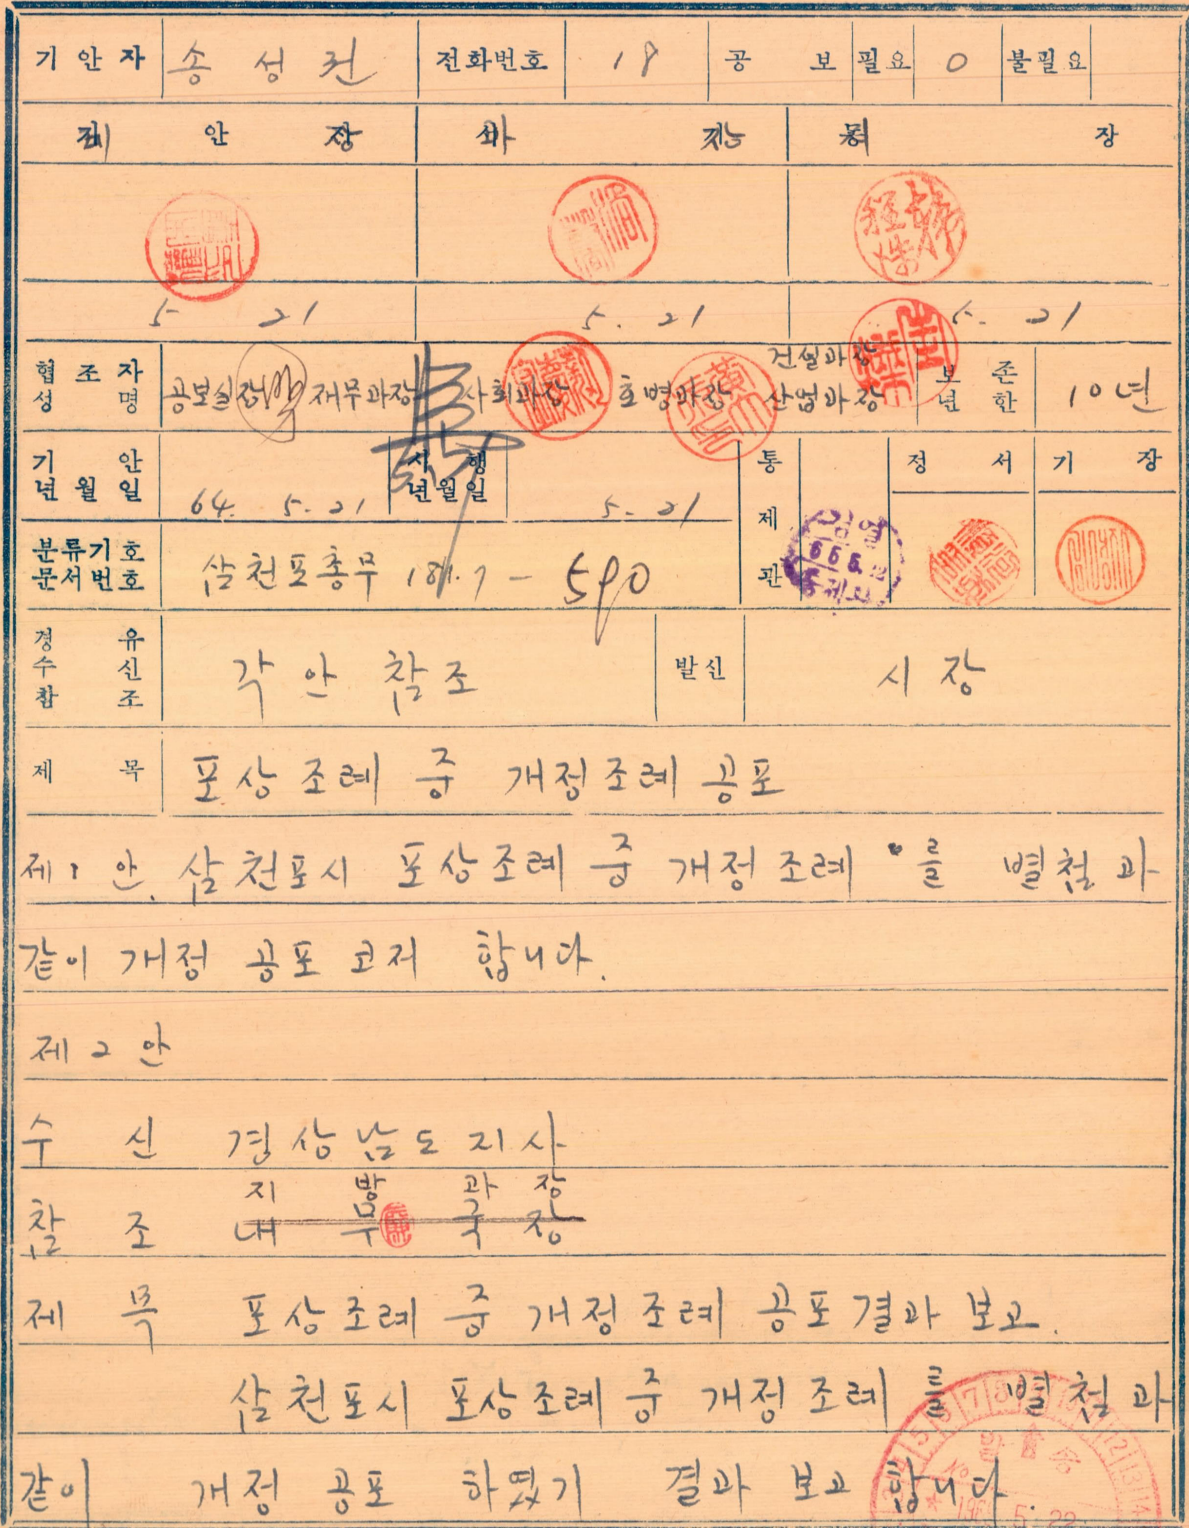 기 안 자 송 성 권 전화번호 18 공 보 필요 0 불필요
안 장 장
5 21 5. 21 5. 21
건설과장
협 조 자 성 명 공보실장 재무과장 사회과장 호병과장 산업과장 보 존 년 한 10년
기 안 년 월 일 64. 5. 21 시 행 년월일 5. 21 통 제 관 정 서 기 장
분류기호 문서번호 삼천포총무 181.7 - 590
경 유 수 신 참 조 각 안 참조 발신 시 장
제 목 포상조례 중 개정조례 공포
제1 안. 삼천포시 포상조례 중 개정조례 를 별첨과
같이 개정 공포 코저 합니다.
제 2 안
수 신 경상남도지사
지 방 과 장
참 조 내 무 국 장
제 목 포상조례 중 개정조례 공포결과 보고.
삼천포시 포상조례 중 개정조례 를 별첨과
같이 개정 공포 하였기 결과 보고 합니다.